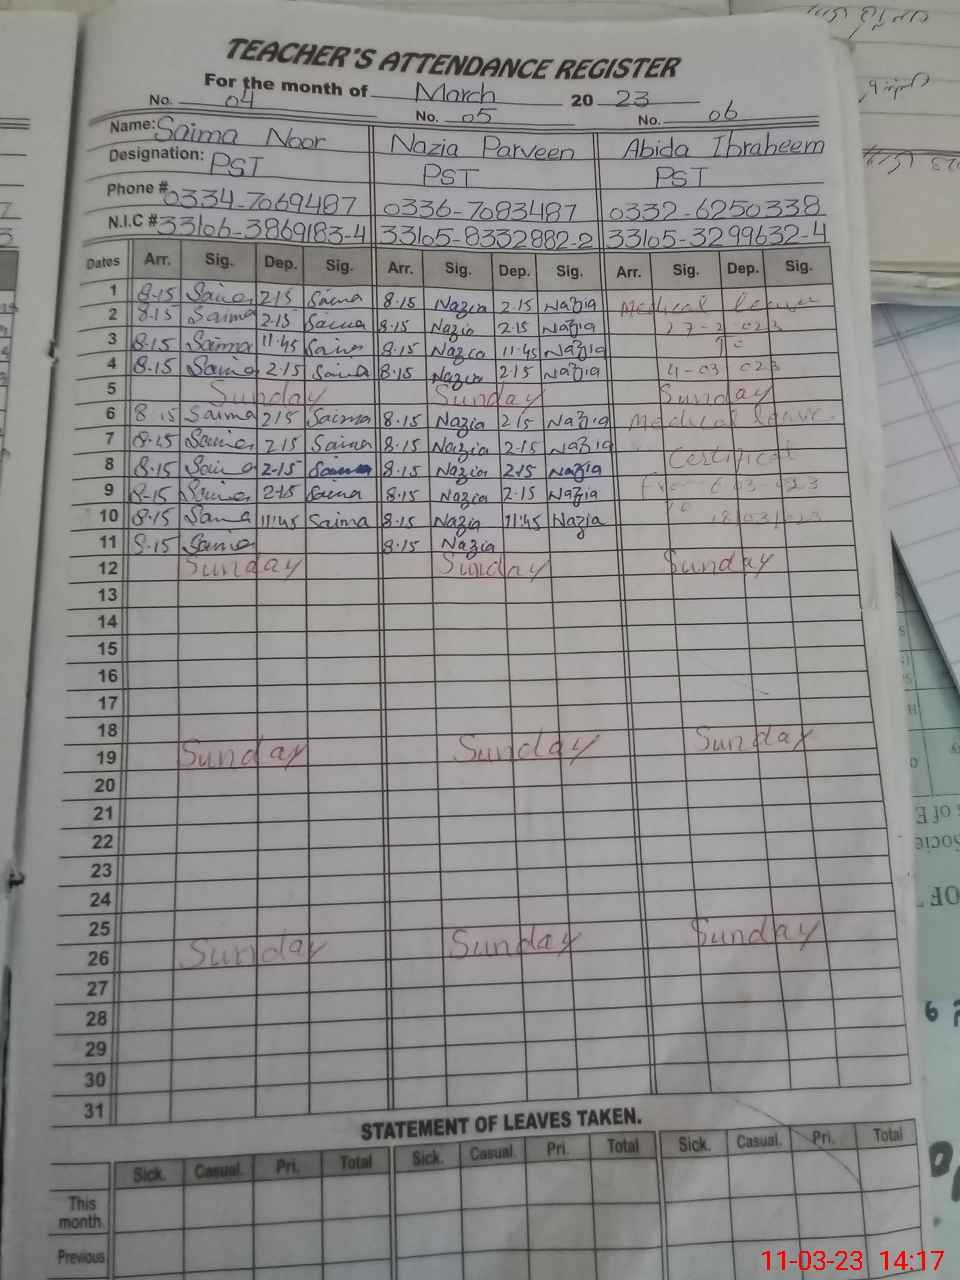 TEACHER'S ATTENDANCE REGISTER
For the month of March 20 23
No. 04 No. 05 No. 06
Name: Saima Noor Nazia Parveen Abida Ibraheem
Designation: PST PST PST
Phone # 0334-7069487 0336-7083487 0332-6250338
N.I.C # 33106-3869183-4 33105-8332882-2 33105-3299632-4
Dates Arr. Sig. Dep. Sig. Arr. Sig. Dep. Sig. Arr. Sig. Dep. Sig.
1 8.15 Saima 2.15 Saima 8.15 Nazia 2.15 Nazia Medical leave
2 8.15 Saima 2.15 Saima 8.15 Nazia 2.15 Nazia 27-2-023
3 8.15 Saima 11.45 Saima 8.15 Nazia 11.45 Nazia To
4 8.15 Saima 2.15 Saima 8.15 Nazia 2.15 Nazia 4-03 023
5 Sunday Sunday Sunday
6 8.15 Saima 2.15 Saima 8.15 Nazia 2.15 Nazia Medical leave
7 8.15 Saima 2.15 Saima 8.15 Nazia 2.15 Nazia
8 8.15 Saima 2.15 Saima 8.15 Nazia 2.15 Nazia Certificat
9 8.15 Saima 2.15 Saima 8.15 Nazia 2.15 Nazia From 6-03-023
10 8.15 Saima 11.45 Saima 8.15 Nazia 11.45 Nazia To 18/03/023
11 8.15 Saima 8.15 Nazia
12 Sunday Sunday Sunday
13
14
15
16
17
18
19 Sunday Sunday Sunday
20
21
22
23
24
25
26 Sunday Sunday Sunday
27
28
29
30
31
STATEMENT OF LEAVES TAKEN.
Sick. Casual. Pri. Total Sick. Casual. Pri. Total Sick. Casual. Pri. Total
This
month.
Previous
11-03-23 14:17